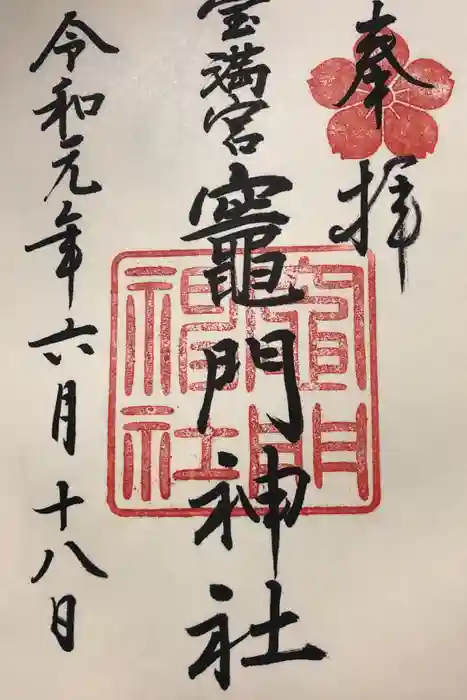 奉拝
宝満宮
竈門神社
竈門神社
令和元年六月十八日